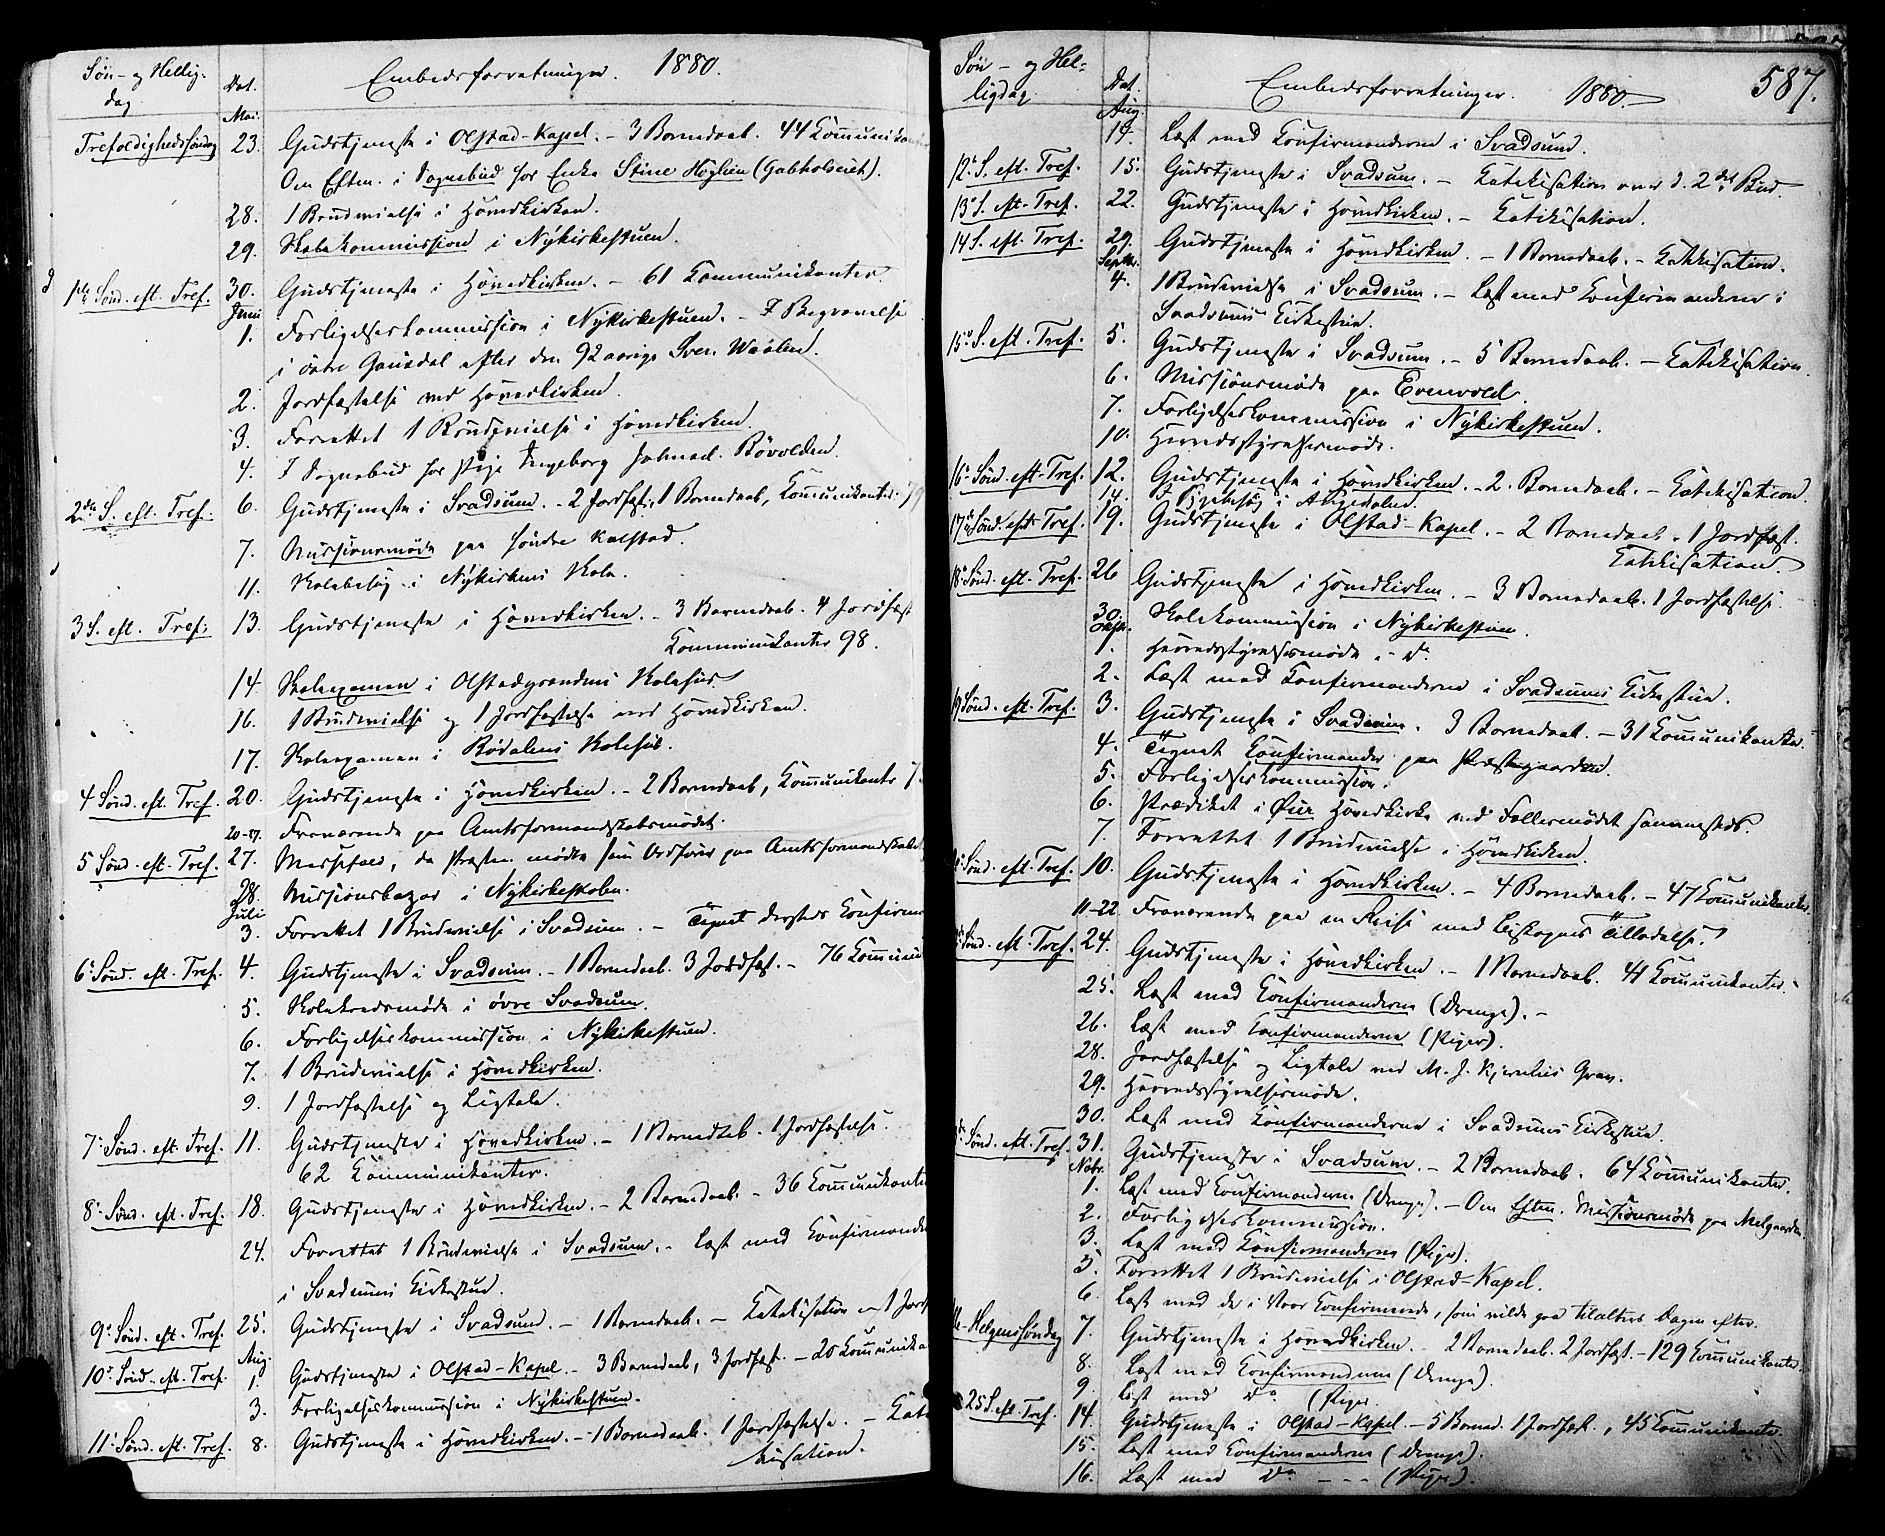 Søn- og Hellig-
dag.
Dat.
Embedsforretninger. 1880.
Mai.
Trefoldighedssøndag 23. Gudstjeneste i Olstad-Kapel. - 3 Barnedaab. 44 Kommunikanter
Om Efterm. i Sognebud hos Enke Stine Höglien (Gabholseiet).
28. 1 Brudevielse i Hovedkirken.
29. Skolekommission i Nykirkestuen.
1ste Sønd. eft. Tref. 30. Gudstjeneste i Hovedkirken. - 61 Kommunikanter.
Juni
1. Forligelseskommission i Nykirkestuen. - I Begravelse
i övre Gausdal efter den 92 aarige Sven
2. Jordfæstelse ved Hovedkirken.
3. Forrettet 1 Brudevielse i Hovedkirken.
4. I Sognebud hos Pige Ingeborg Johnsd. Rövolden.
2den S. eft. Tref. 6. Gudstjeneste i Svadsum. - 2 Jordfæst., 1 Barnedaab, Kommunikanter 79
7. Missionsmøde paa søndre Kalstad.
11. Skolebesøg i Nykirkens Skole.
3 S. eft. Tref. 13. Gudstjeneste i Hovedkirken. - 3 Barnedaab. 4 Jordfæst
Kommunikanter 98.
14. Skoleexamen i Olstadgrendens Skolehus
16. 1 Brudevielse og 1 Jordfæstelse ved Hovedkirken.
17. Skoleexamen i Bödalens Skolehus.
4 Sønd. eft. Tref. 20. Gudstjeneste i Hovedkirken. - 2 Barnedaab, Kommunikanter
20-27. Fraværende paa Amtsformandskabsmödet.
5 Sønd. eft. Tref. 27. Messefald, da Præsten mødte som Ordfører paa Amtsformandskabet
28. Missionsbazar i Nykirkeskolen.
Juli
3. Forrettet 1 Brudevielse i Svadsum. - Tegnet dersteds Konfirm
6te Sønd. eft. Tref. 4. Gudstjeneste i Svadsum. - 1 Barnedaab. 3 Jordfæst. - 76 Kommuni
5. Skolekredsmøde i övre Svadsum.
6. Forligelseskommission i Nykirkestuen.
7. 1 Brudevielse i Hovedkirken.
9. 1 Jordfæstelse og Ligtale.
7de Sønd. eft. Tref. 11. Gudstjeneste i Hovedkirken. - 1 Barnedaab. 1 Jordfæstelse.
62 Kommunikanter.
8de Sønd. eft. Tref. 18. Gudstjeneste i Hovedkirken. - 2 Barnedaab. - 36 Kommunikanter
24. Forrettet 1 Brudevielse i Svadsum. - Læst med Konfirmander
i Svadsums Kirkestue.
9de Sønd. eft. Tref. 25. Gudstjeneste i Svadsum. - 1 Barnedaab. - Katekisation - 1 Jordf
Aug.
10de Sønd. eft. Tref. 1. Gudstjeneste i Olstad-Kapel. - 3 Barnedaab, 3 Jordfæst. - 20 Kommunika
3. Forligelseskommission i Nykirkestuen.
11te Sønd. eft. Tref. 8. Gudstjeneste i Hovedkirken. - 1 Barnedaab. 1 Jordfæstelse. - Kate-
kisation.
Søn- og Hel-
ligdag.
Dat.
Embedsforretninger. 1880.
587.
Aug
14. Læst med Konfirmanderne i Svadsum.
12te S. eft. Tref. 15. Gudstjeneste i Svadsum. - Katekisation over d. 2det Bud
13de S. eft. Tref. 22. Gudstjeneste i Hovedkirken. - Katekisation.
14 S. eft. Tref. 29. Gudstjeneste i Hovedkirken. - 1 Barnedaab. - Katekisation.
Septbr.
4. 1 Brudevielse i Svadsum. - Læst med Konfirmanderne i
Svadsums Kirkestue.
15de S. eft. Tref. 5. Gudstjeneste i Svadsum. - 5 Barnedaab. - Katekisation.
6. Missionsmøde paa Evenvold.
7. Forligelseskommission i Nykirkestuen.
10. Herredsstyrelsesmøde.
16de Sønd. eft. Tref. 12. Gudstjeneste i Hovedkirken. - 2 Barnedaab. - Katekisation.
14. I Sygebesøg i
17de Sønd. eft. Tref. 19. Gudstjeneste i Olstad-Kapel. - 2 Barnedaab. 1 Jordfæst.
Katekisation.
18de Sønd. eft. Tref. 26 Gudstjeneste i Hovedkirken. - 3 Barnedaab. 1 Jordfæstelse.
30. Skolekommission i Nykirkestuen.
Oktbr.
1. Herredsstyrelsesmøde i do
2. Læst med Konfirmanderne i Svadsums Kirkestue.
19 Sønd. eft. Tref. 3. Gudstjeneste i Svadsum. 3 Barnedaab. - 31 Kommunikanter.
4. Tegnet Konfirmander paa Præstegaarden.
5. Forligelseskommission.
6. Prædiket i Øier Hovedkirke ved Fællesmødet sammesteds.
7. Forrettet 1 Brudevielse i Hovedkirken.
Sønd. eft. Tref. 10. Gudstjeneste i Hovedkirken. - 4 Barnedaab. - 47 Kommunikanter.
11-22. Fraværende paa en Reise med Biskopens Tilladelse.
Sønd. eft. Tref. 24. Gudstjeneste i Hovedkirken. - 1 Barnedaab. 41 Kommunikanter.
25. Læst med Konfirmanderne (Drenge). -
26. Læst med Konfirmanderne (Piger).
28. Jordfæstelse og Ligtale ved M. J. Grav.
29. Herredsstyrelsesmøde.
30. Læst med Konfirmanderne i Svadsums Kirkestue.
Sønd. eft. Tref. 31. Gudstjeneste i Svadsum. - 2 Barnedaab. 64 Kommunikanter.
Nobr.
1. Læst med Konfirmanderne (Drenge). - Om Efterm. Missionsmøde paa Melgaarden
2. Forligelseskommission.
3. Læst med Konfirmanderne (Piger).
5. Forrettet 1 Brudevielse i Olstad-Kapel.
6. Læst med de i Vaar Konfirmerede, som vilde gaa tilalters Dagen efter.
Alle-Helgenssøndag 7. Gudstjeneste i Hovedkirken. - 2 Barnedaab. 2 Jordfæst. - 129 Kommunikanter.
8. Læst med Konfirmanderne (Drenge).
9. Læst med do (Piger
25 S. eft. Tref. 14. Gudstjeneste i Olstad-Kapel. - 5 Barned. 1 Jordfæst., 45 Kommunikanter.
15. Læst med Konfirmanderne (Drenge).
16. Læst med do - - - (Piger).